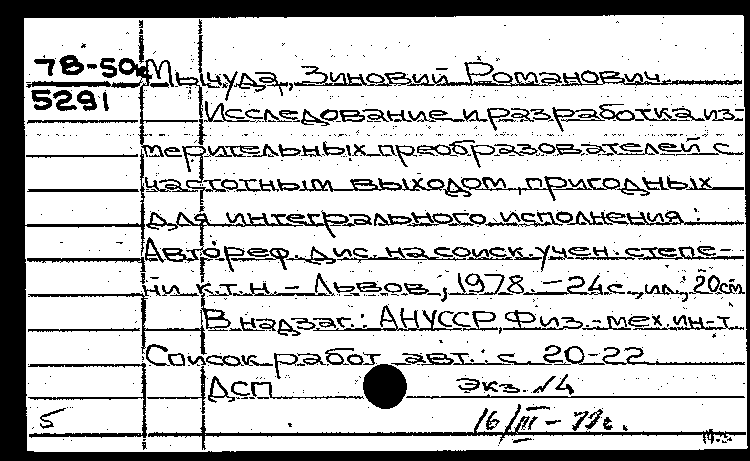 78-50
5291
Мычуда, Зиновий Романович
Исследование и разработка из-
мерительных преобразователей с
частотным выходом, пригодных
для интегрального исполнения:
Автореф. дис. на соиск. учен. степе-
ни к.т.н. - Львов, 1978. - 24с., ил.; 20см
В надзаг.: АН УССР, Физ.-мех. ин-т.
Список работ авт.: с. 20-22
ДСП Экз. №4
5 16/III - 79г.